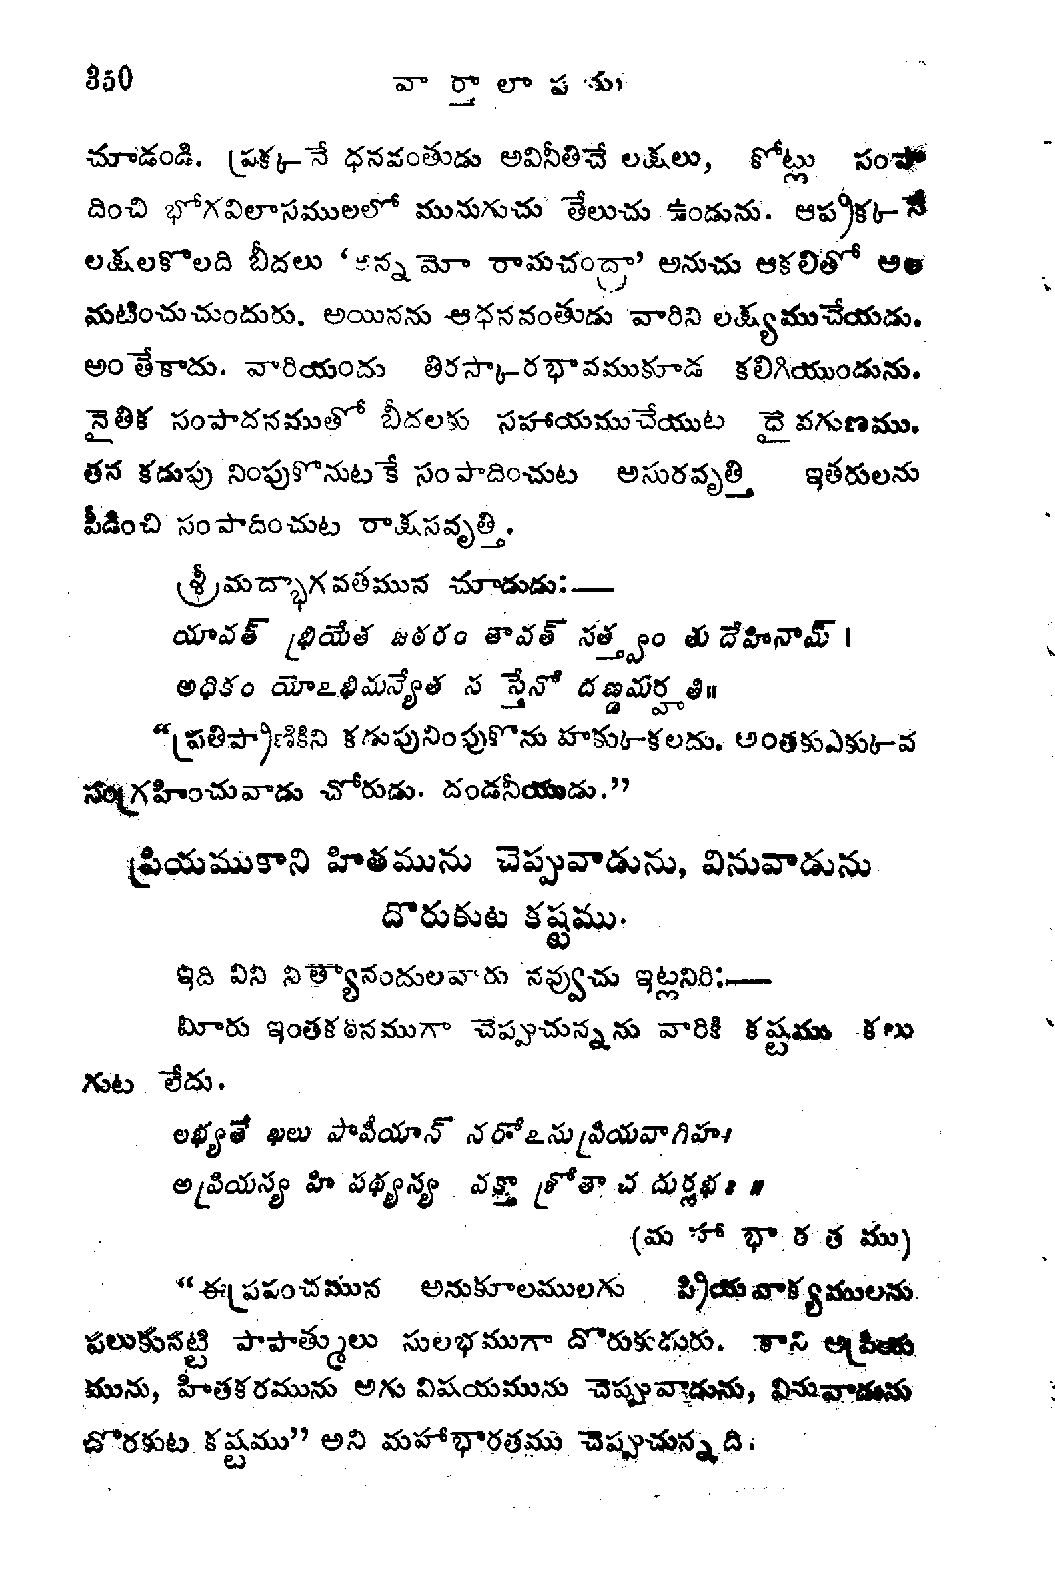 350 వార్తాలాపము
చూడండి. ప్రక్కనే ధనవంతుడు అవినీతిచే లక్షలు, కోట్లు సంపా
దించి భోగవిలాసములలో మునుగుచు తేలుచు ఉండును. ఆప్రక్కనే
లక్షలకొలది బీదలు ‘అన్నమో రామచంద్రా’ అనుచు ఆకలితో అల
మటించుచుందురు. అయినను ఆధనవంతుడు వారిని లక్ష్యముచేయడు.
అంతేకాదు. వారియందు తిరస్కారభావముకూడ కలిగియుండును.
నైతిక సంపాదనముతో బీదలకు సహాయముచేయుట దైవగుణము.
తన కడుపు నింపుకొనుటకే సంపాదించుట అసురవృత్తి ఇతరులను
పీడించి సంపాదించుట రాక్షసవృత్తి.
శ్రీమద్భాగవతమున చూడుడు:—
యావత్ భ్రియేత జఠరం తావత్ సత్త్వం తు దేహినామ్ ।
అధికం యోఽభిమన్యేత స స్తేనో దణ్డమర్హతి॥
“ప్రతిప్రాణికిని కడుపునింపుకొను హక్కుకలదు. అంతకుఎక్కువ
సంగ్రహించువాడు చోరుడు. దండనీయుడు.”
ప్రియముకాని హితమును చెప్పువాడును, వినువాడును
దొరుకుట కష్టము.
ఇది విని నిత్యానందులవారు నవ్వుచు ఇట్లనిరి:—
మీారు ఇంతకఠినముగా చెప్పుచున్నను వారికి కష్టము కలు
గుట లేదు.
లభ్యతే ఖలు పాపీయాన్ నరోఽనుప్రియవాగిహ।
అప్రియస్య హి పథ్యస్య వక్తా శ్రోతా చ దుర్లభః ॥
(మహాభారతము)
“ఈప్రపంచమున అనుకూలములగు ప్రియవాక్యములను
పలుకునట్టి పాపాత్ములు సులభముగా దొరుకుదురు. కాని అప్రియ
మును, హితకరమును అగు విషయమును చెప్పువాడును, వినువాడును
దొరకుట కష్టము” అని మహాభారతము చెప్పుచున్నది.